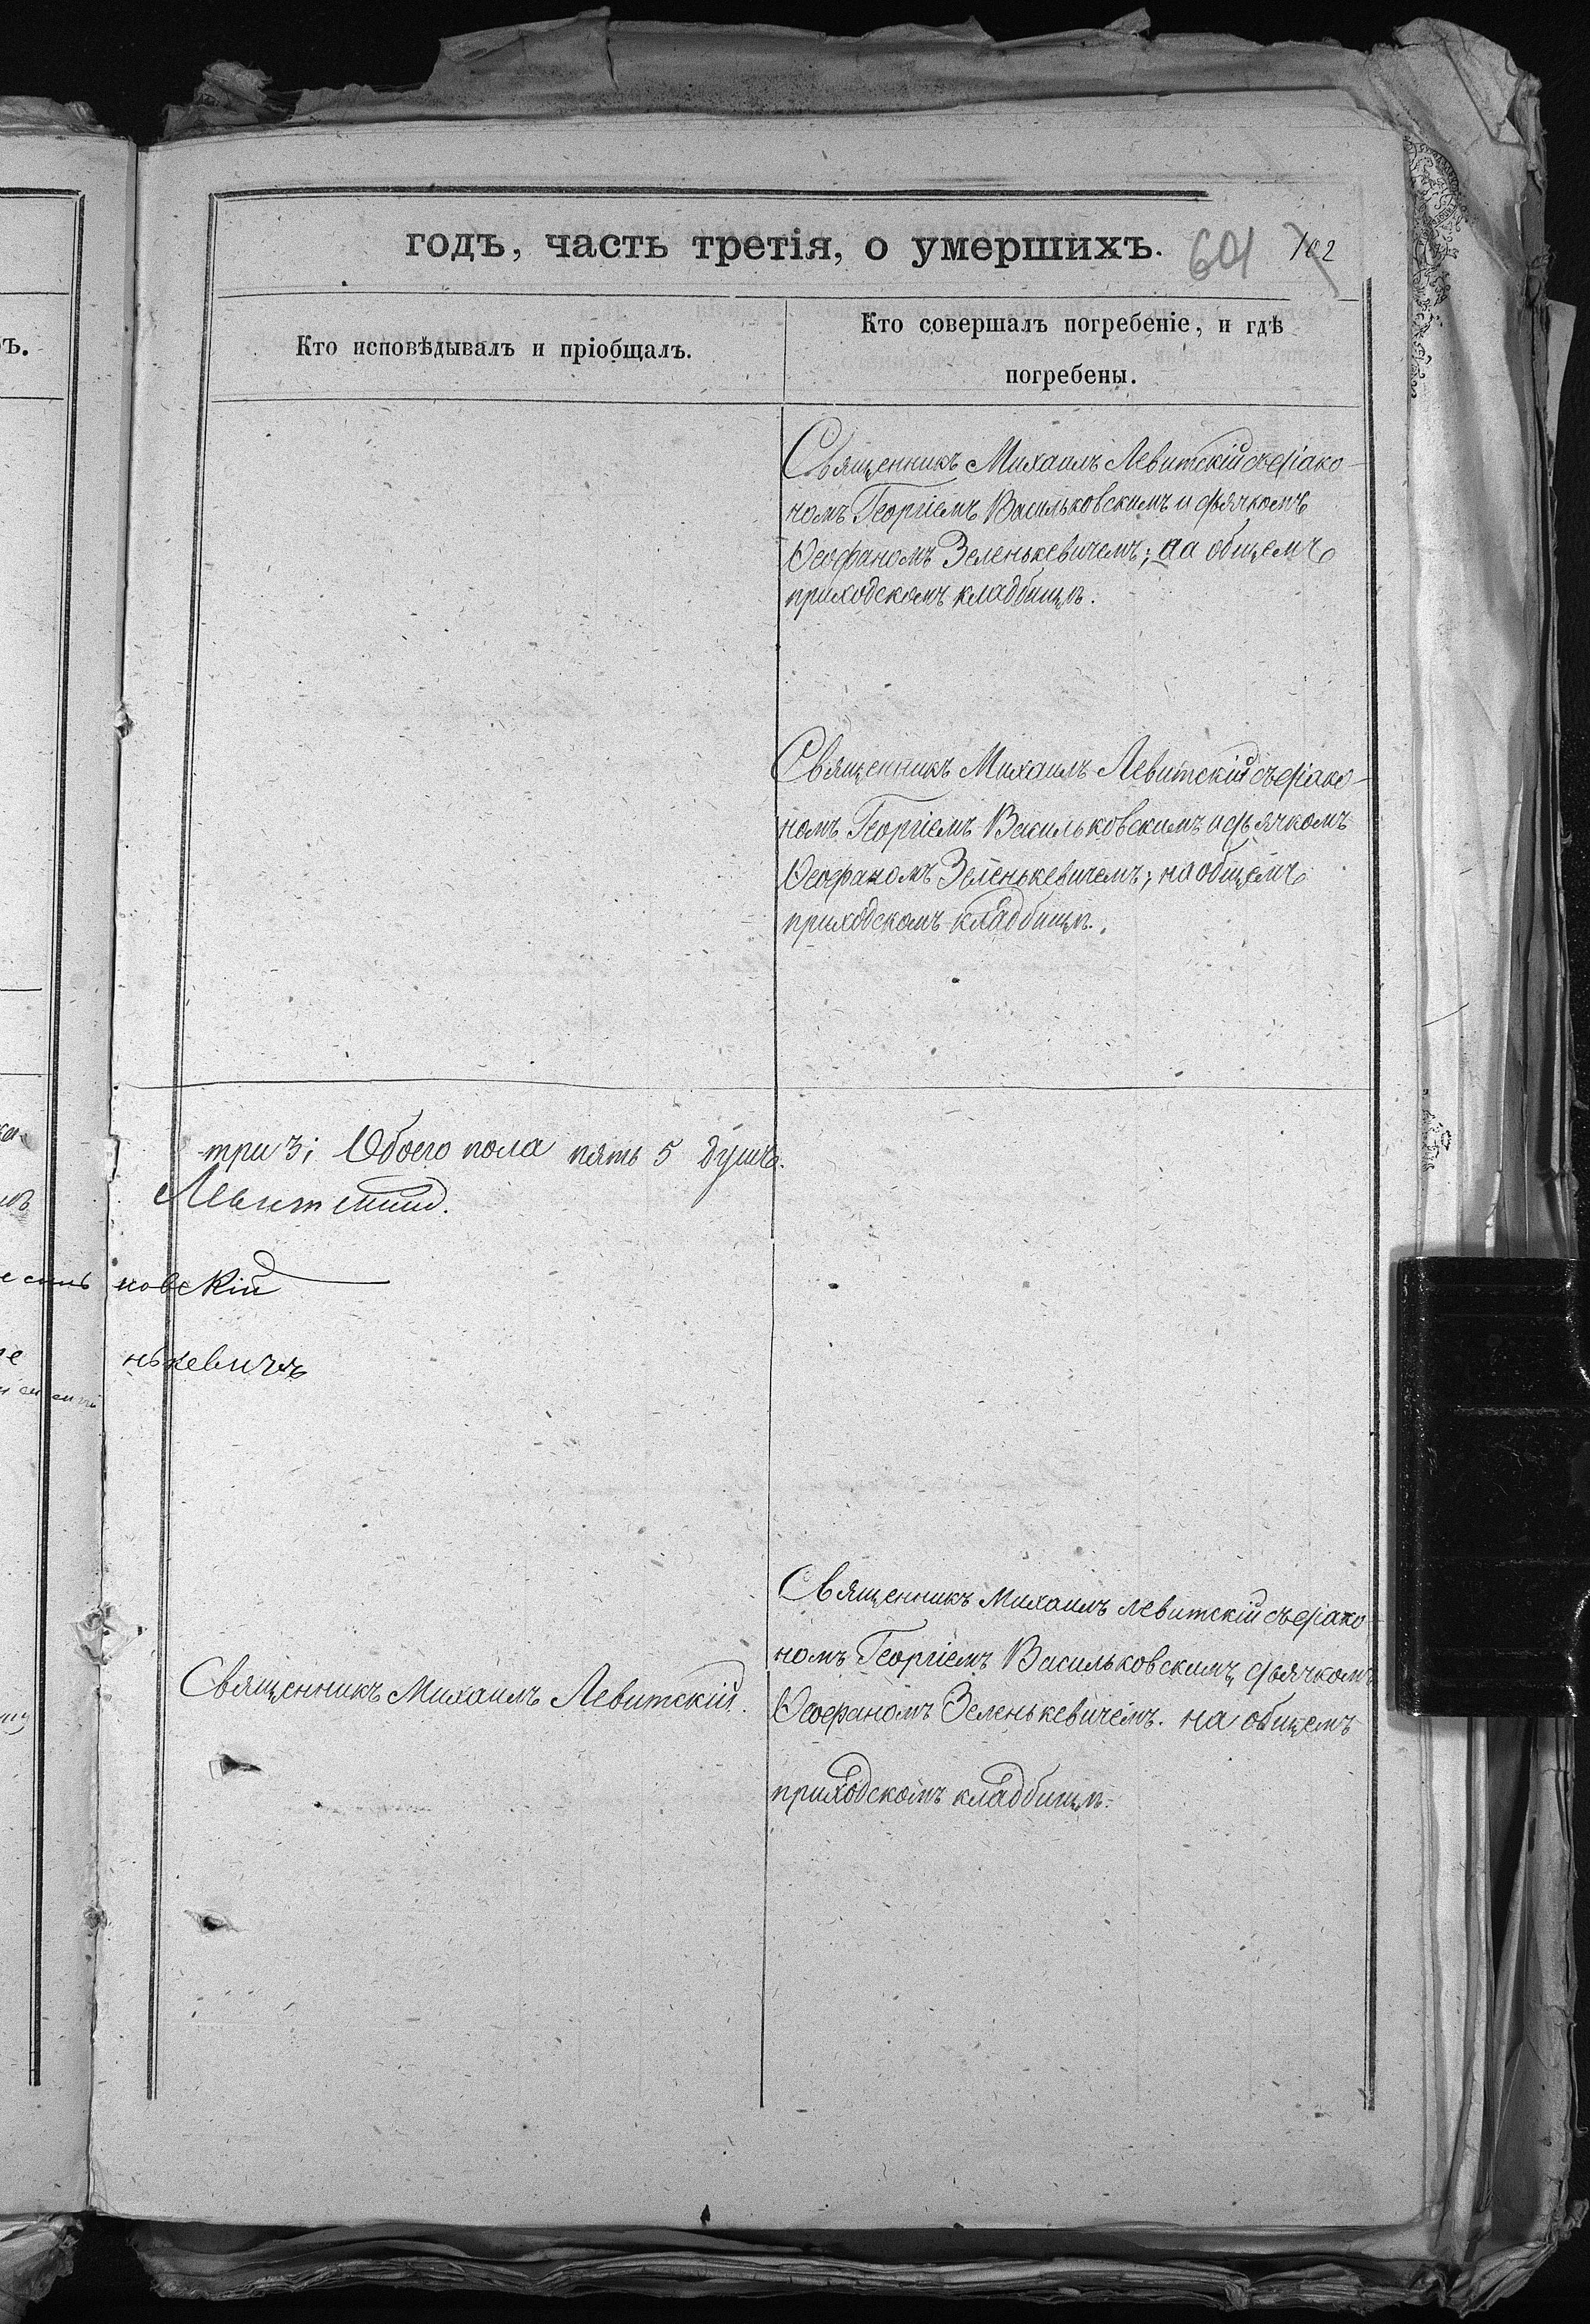 годъ, часть третія, о умершихъ. 601 102
Кто исповѣдывалъ и пріобщалъ.
Кто совершалъ погребеніе, и гдѣ
погребены.
Священникъ Михаилъ Левитскій съ діако-
номъ Георгіемъ Васильковскимъ и дьячкомъ
Ѳеофаномъ Зеленькевичемъ; на общемъ
приходскомъ кладбищѣ.
Священникъ Михаилъ Левитскій съ діако-
номъ Георгіемъ Васильковскимъ и дьячкомъ
Ѳеофаномъ Зеленькевичемъ; на общемъ
приходскомъ кладбищѣ.
три 3; Обоего пола пять 5 душъ.
Левитскій.
ковскій
нькевичъ
Священникъ Михаилъ Левитскій.
Священникъ Михаилъ Левитскій съ діако
номъ Георгіемъ Васильковскимъ, дьячкомъ
Ѳеофаномъ Зеленькевичемъ. на общемъ
приходскомъ кладбищѣ.